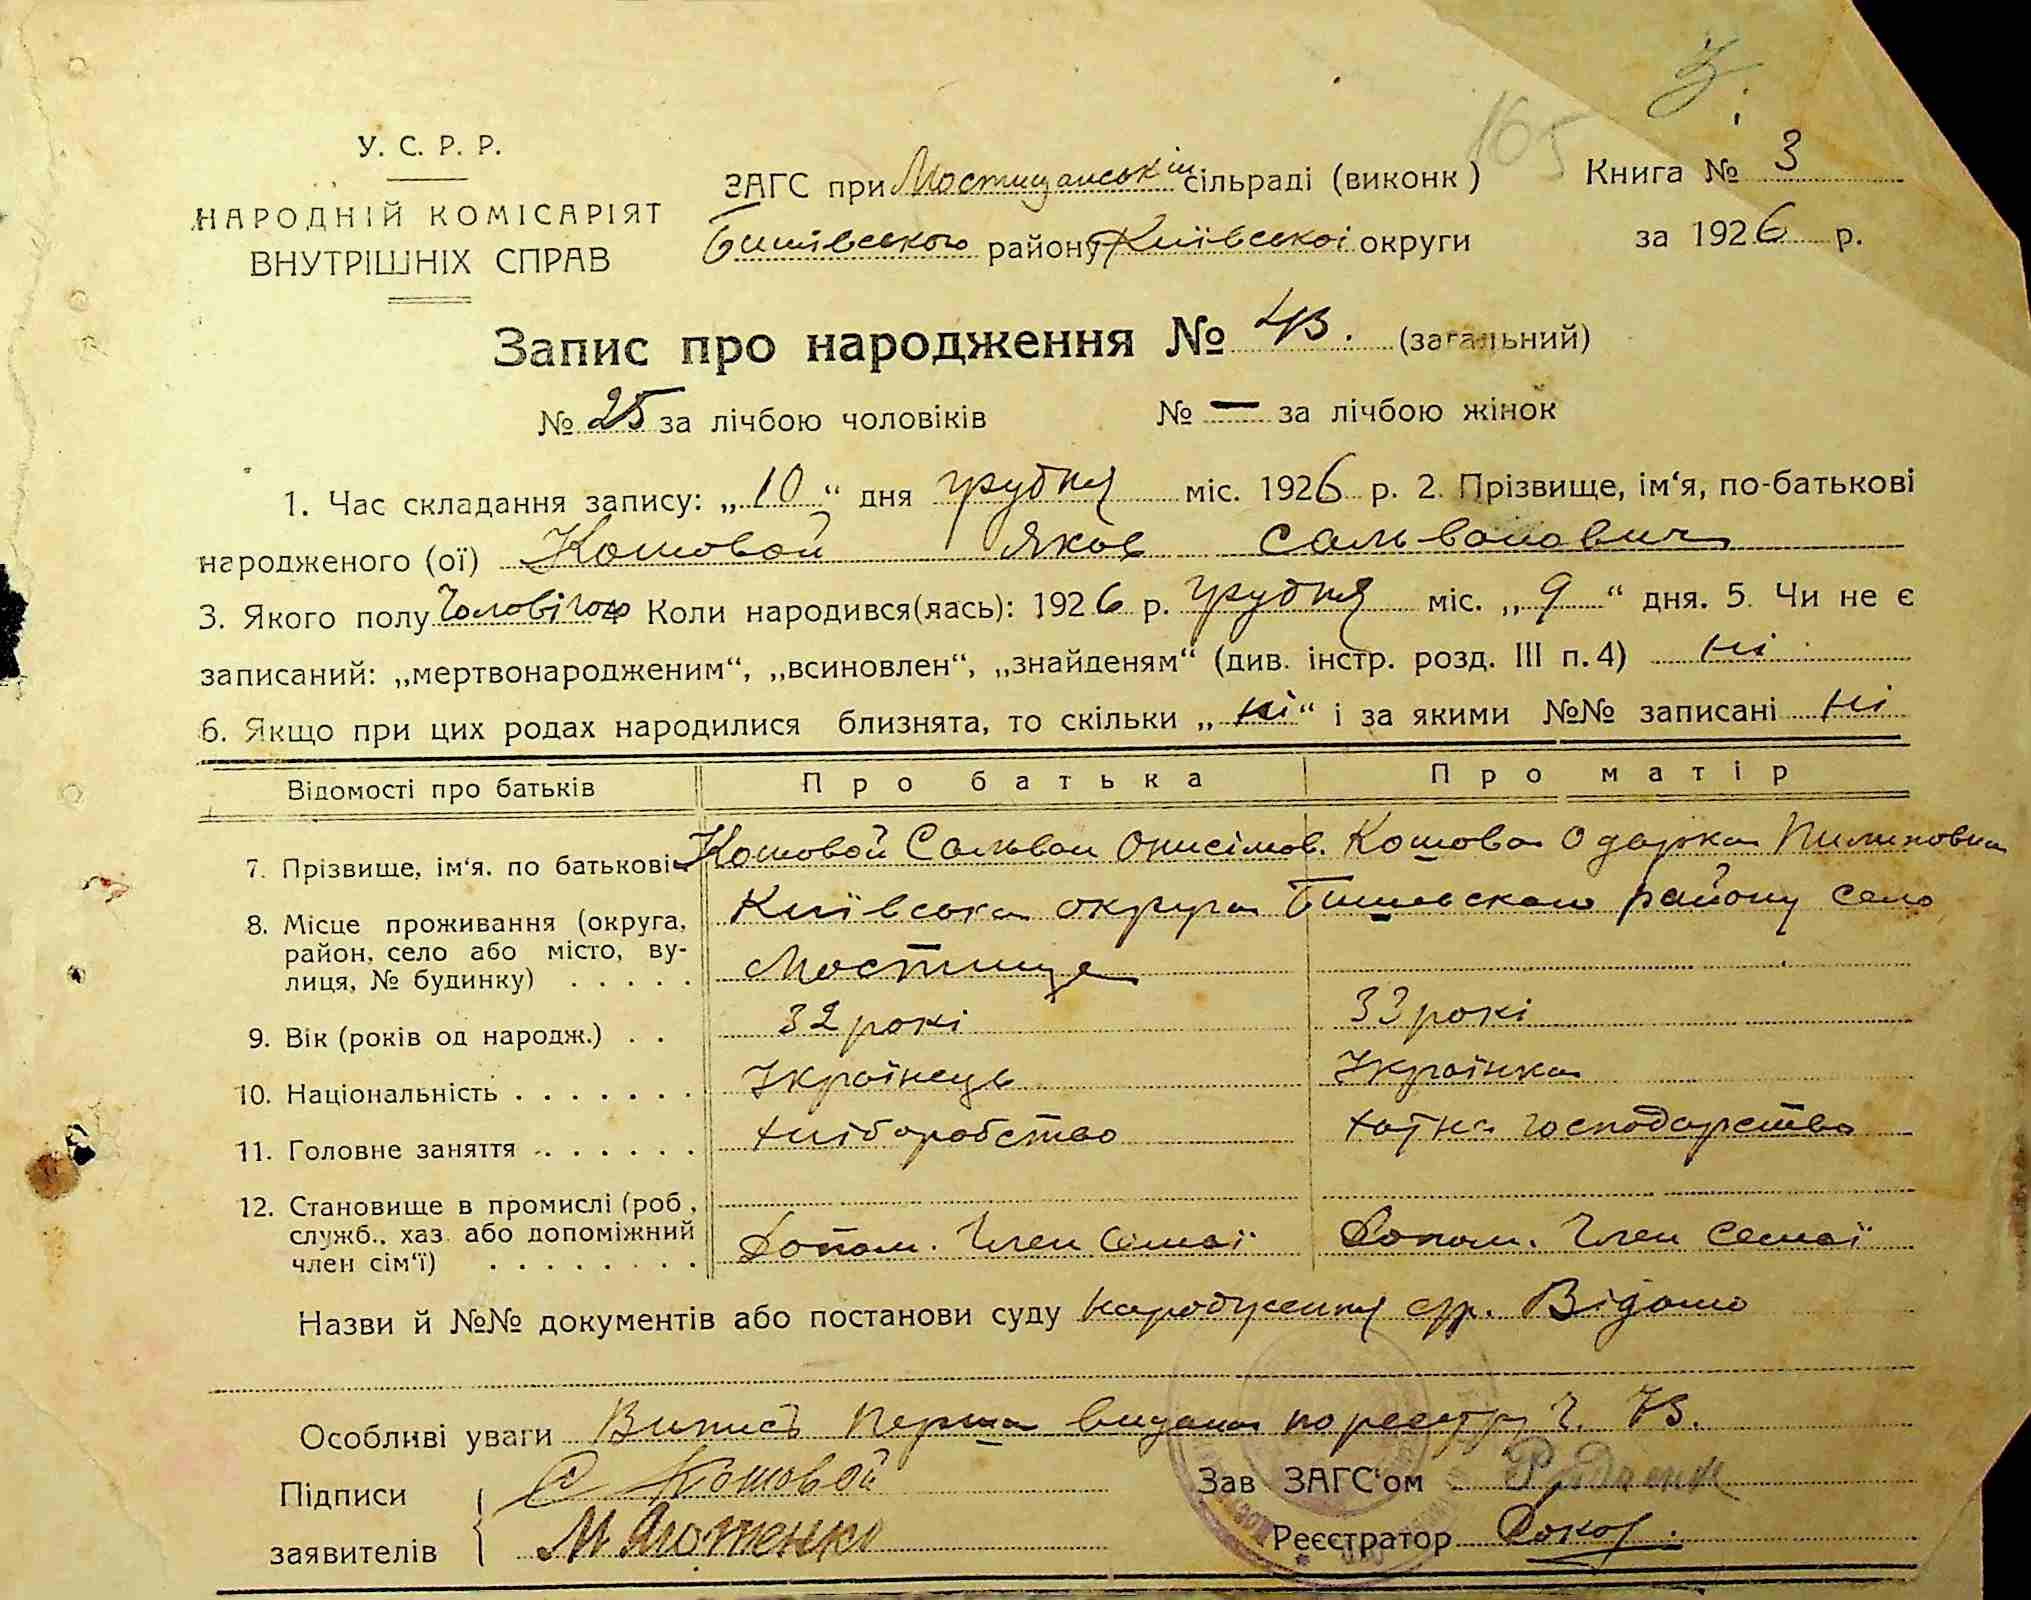 З.
165
У. С. Р. Р.
НАРОДНІЙ КОМІСАРІЯТ
ВНУТРІШНІХ СПРАВ
ЗАГС при Мостищанській сільраді (виконк)
Бишівського району Київської округи
Книга № 3
за 1926 р.
Запис про народження № 43. (загальний)
№ 25 за лічбою чоловіків № — за лічбою жінок
1. Час складання запису: „10“ дня грудня міс. 1926 р. 2. Прізвище, ім‘я, по-батькові
народженого (ої) Кошовой Яков Сальванович
3. Якого полу Чоловічого 4 Коли народився(лась): 1926 р. грудня міс. „9“ дня. 5. Чи не є
записаний: „мертвонародженим“, „всиновлен“, „знайденям“ (див. інстр. розд. III п. 4) ні
6. Якщо при цих родах народилися близнята, то скільки „ні“ і за якими №№ записані ні
Відомості про батьків Про батька Про матір
7. Прізвище, ім‘я. по батькові Кошовой Сальван Онисімов. Кошова Одарка Пилиповна
8. Місце проживання (округа, Київська округа Бишевского району село
район, село або місто, ву- Мостище
лиця, № будинку) . . . . .
9. Вік (років од народж.) . . 32 рокі 33 рокі
10. Національність . . . . . . . Українець Українка
11. Головне заняття . . . . . . хліборобство хатне господарство
12. Становище в промислі (роб.,
служб., хаз. або допоміжний Допом. Член семьї Допом. Член семьї
член сім‘ї) . . . . . . . .
Назви й №№ документів або постанови суду народження Відомо
Особливі уваги Випись перша видана по реестру ч. 73.
Підписи С Кошовой Зав ЗАГС‘ом
заявителів Реєстратор